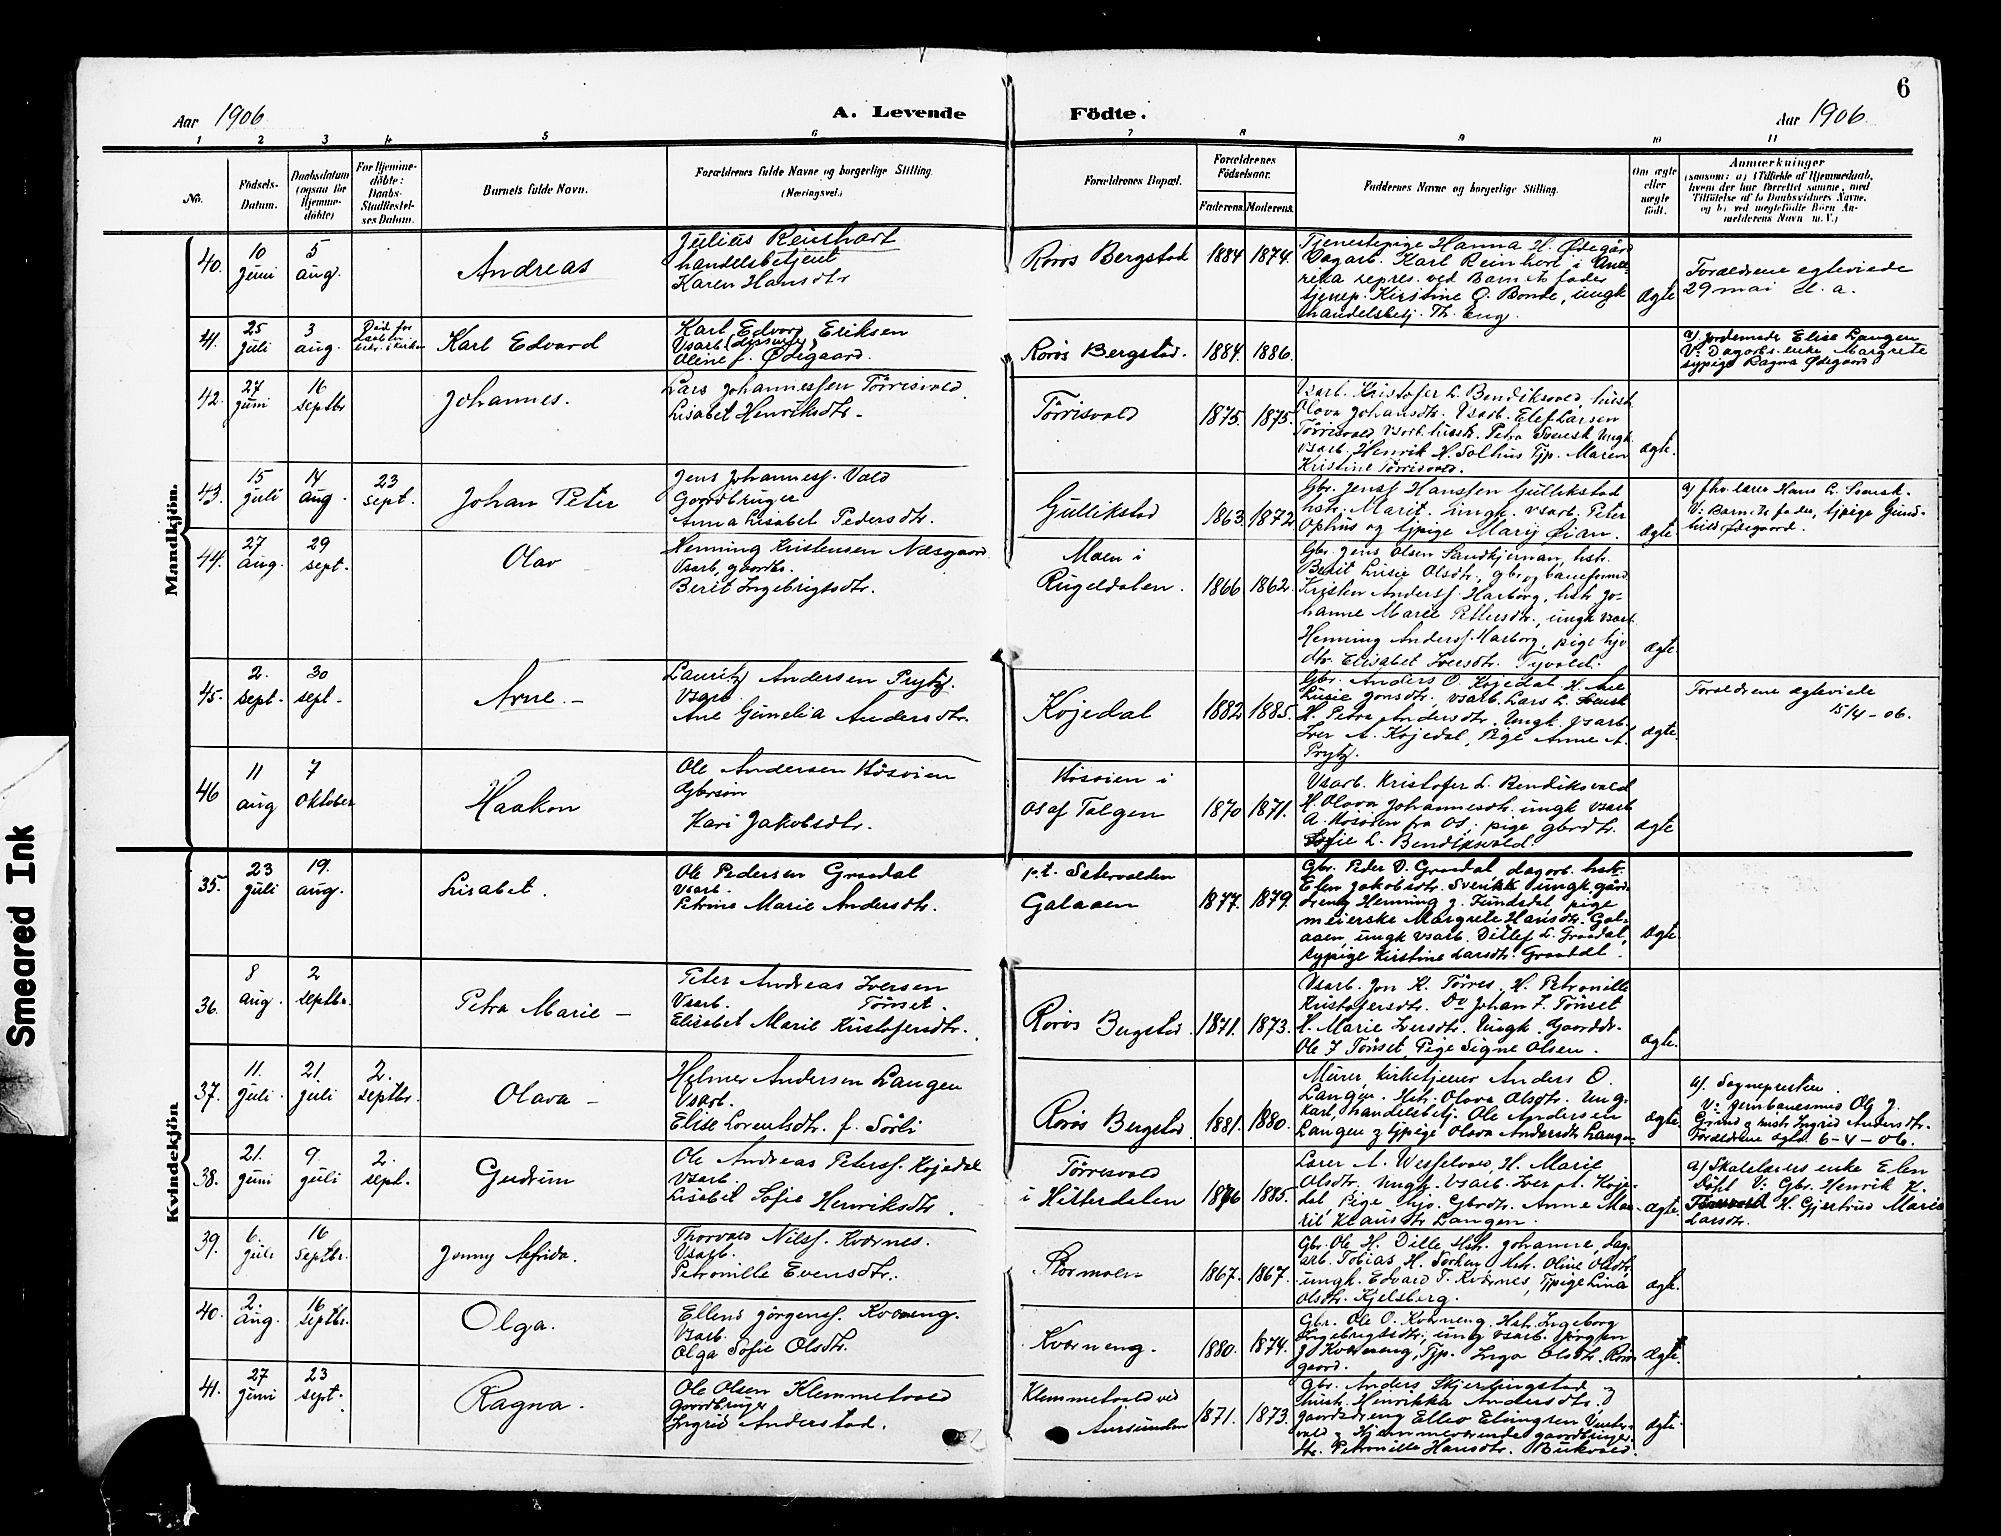 6
Aar 1906
A. Levende
Födte.
Aar 1906
1 2 3 4 5 6 7 8 9 10 11
No.
Födsels-
Datum.
Daabsdatum
(ogsaa for
Hjemme-
döbte)
For Hjemme-
döbte:
Daabs-
Stadfæstel-
ses Datum.
Barnets fulde Navn.
Forældrenes fulde Navne og borgerlige Stilling.
(Næringsvei.)
Forældrenes Bopæl.
Forældrenes
Födselsaar.
Faderens. Moderens.
Faddernes Navne og borgerlige Stilling.
Om ægte
eller
uægte
födt.
Anmærkninger
(saasom: a) i Tilfælde af Hjemmedaab,
hvem der har forrettet samme, med
Tilföielse af to Daabsvidners Navne,
og b) ved uægtefödte Börn An-
melderens Navn m. V.)
Mandkjön.
40.
10
juni
5
aug.
Andreas
Julius Reinhart
handelsbetjent
Karen Hansdtr
Röros Bergstad
1884 1874.
Tjenestepige Hanna H. Ødegård
Dagarb. Karl Reinhart i Ame-
rika repres. ved Barnets fader
tjenep. Kirstine O. Bonde, ungk
handelsbetj. Th. Eng.
ægte
Foreldrene egteviede
29 mai d. a.
41.
25
juli
3
aug.
Död för
Karl Edvard
Karl Edvard Eriksen
Vsarb.
Oline f. Ødegaard.
Röros Bergstad.
1884. 1886.
a) Jordemode Elise Langen
V: Dagarb.s enke Margrete
sypige Ragna Ødegaard
42.
27
juni
16
septbr
Johannes.
Lars Johannessen Törrisvold
Lisabet Henriksdtr.
Törrisvold
1875. 1875.
Vsarb. Kristofer L. Bendiksvold, hust.
Olava Johansdtr. Vsarb. Elef Larsen
Törrisvold Vsarb. hustr. Petra Svensk Ungk.
vsarb. Henrik H. Solhus Tjp. Maren
Kristine Törrisvold.
ægte.
43.
15
juli
14
aug.
23
sept.
Johan Peter
Jens Johannessf. Vold
Gaardbruger
Anna Lisabet Pedersdtr.
Gullikstad
1863. 1872
Gbr. Jens Hanssen Gullikstad
hstr. Marit. Ungk. vsarb. Peter
Ophus og tjpige Marij Øian.
ægte
a) fhv. lærer Hans L. Svensk.
V: Barnets fader, tjpige Gund-
hild Ødegaard.
44.
27
aug.
29
sept.
Olav
Henning Kristensen Næsgaard
Vsarb, gaardbr.
Berit Ingebrigtsdtr.
Moen i
Rugeldalen.
1866 1862.
Gbr. Jens Olsen Sandkjernan, hst.
Berit Lusie Olsdtr, gbr. og baneformd
Kristen Anderss. Harborg, hstr. Jo-
hanne Marie Pettersdtr., ungk vsarb.
Henning Anderss. Harborg, pige hjv
dtr. Elisabet Iversdtr. Tyvold.
ægte
45.
2.
sept.
30
sept.
Arne. -
Lauritz Andersen Prytz.
Vsarb.
Ane Gunelia Andersdtr.
Kojedal
1882 1885.
Gbr. Anders O. Kojedal H. Ane
Lusie Jonsdtr., vsarb. Lars L. Svensk
H. Petra Andersdtr. Ungk. Vsarb.
Iver A. Kojedal, Pige Anne A.
Prytz.
ægte.
Foreldrene ægteviede
15/4 - 06.
46
11
aug
7
Oktober
Haakon
Ole Andersen Hösöien
Gbrsön
Kari Jakobsdtr.
Hösöien i
Os af Tolgen
1870 1871.
Vsarb. Kristofer L. Bendiksvold
H. Olava Johannesdtr. ungk vsarb
A. Hosöien fra Os, pige gbrdtr.
Sofie L. Bendiksvold.
ægte
Kvindekjön
35.
23
juli
19.
aug.
Lisabet.
Ole Pedersen Graadal
Vsarb.
Petrine Marie Andersdtr.
p.t. Setervolden
Galaaen
1877. 1879.
Gbr. Peder D. Graadal, dagarb. hst.
Elen Jakobsdtr. Svensk, ungk. gård-
dreng Henning Z. Sundsdel pige
meierske Margrete Hansdtr. Gal-
aaen, ungk vsarb. Ditlef L. Graadal,
sypige Kirstine Larsdtr. Graadal.
ægte.
36.
8
aug.
2
septbr.
Petra Marie -
Peter Andreas Iversen
Vsarb. Tönset.
Elisabet Marie Kristofersdtr.
Röros Bergstad.
1871. 1873.
Vsarb. Jon K. Törres. H. Petronille
Kristofersdtr. Do Johan I. Tönset
H. Marie Iversdtr. Ungk. Gaardbr.
Ole I Tönset, Pige Signe Olsen.
ægte.
37.
11.
juli.
21.
juli
2.
septbr.
Olava -
Helmer Andersen Langen
Vsarb.
Elise Lorentsdtr. f. Sörli
Röros Bergstad
1881. 1880.
Murer, kirketjener Anders O.
Langen. Hstr. Olava Olsdtr. Ung-
karl, handelsbetj. Ole Andersen
Langen & tjpige Olava Andersdtr. Langen
ægte
a). Sognepresten.
V: Jernbanesmed Ole J.
Grind & hustr Ingrid Andersdtr.
Foreldrene egtev. 6-4-06.
38.
21.
juni
9
juli
2.
sept.
Gudrun
Ole Andreas Peterss. Kojedal
Vsarb.
Lisabet Sofie Henriksdtr.
Törresvold
i Hitterdalen
1876 1885.
Lærer A. Wesselvold, H. Marie
Olsdtr. Ungk. Vsarb. Iver A. Koje-
dal, Pige hjv. Gbrdtr. Anne Ma-
rie Klausdtr Langen.
ægte.
a) Skolelærers enke Elen
Döhl V: Gbr. Henrik K.
H. Gjertrud Marie
Larsdtr.
39.
6.
juli
16
Septbr.
Jenny Alfrida.
Thorvald Nilss. Kværnes.
Vsarb.
Petronille Evensdtr.
Stormoen
1867. 1867.
Gbr. Ole H. Dille Hstr. Johanne, Dag-
arb. Tobias H. Hstr. Oline Olsdtr.
ungk. Edvard T. Kværnes, Tjpige Lina
Olsdtr. Kjelsberg.
ægte
40.
2.
aug.
16
septbr.
Olga.
Ellend Jörgenss. Kværneng.
Vsarb.
Olga Sofie Olsdtr.
Kværneng.
1880. 1874.
Gbr. Ole O. Kværneng. Hstr. Ingeborg
Ingebrigtsdtr., ung vsarb. Jörgen
J Kværneng, Tjp. Inga Olsdtr. Röros
gaard.
ægte.
41.
27
juni
23
sept.
Ragna.
Ole Olsen Klemmetvold
Gaardbruger
Ingrid Anderstad.
Klemmetvold ved
Aursunden
1871. 1873.
Gbr. Anders Skjerbingstad &
hustr. Henrikka Andersdtr.,
gaardsdreng Ellev Elvingsen Vinter-
vold & Hjemmeværende gaardbruger
dtr. Petronille Hansdtr. Bukvold.
ægte
Smeared Ink